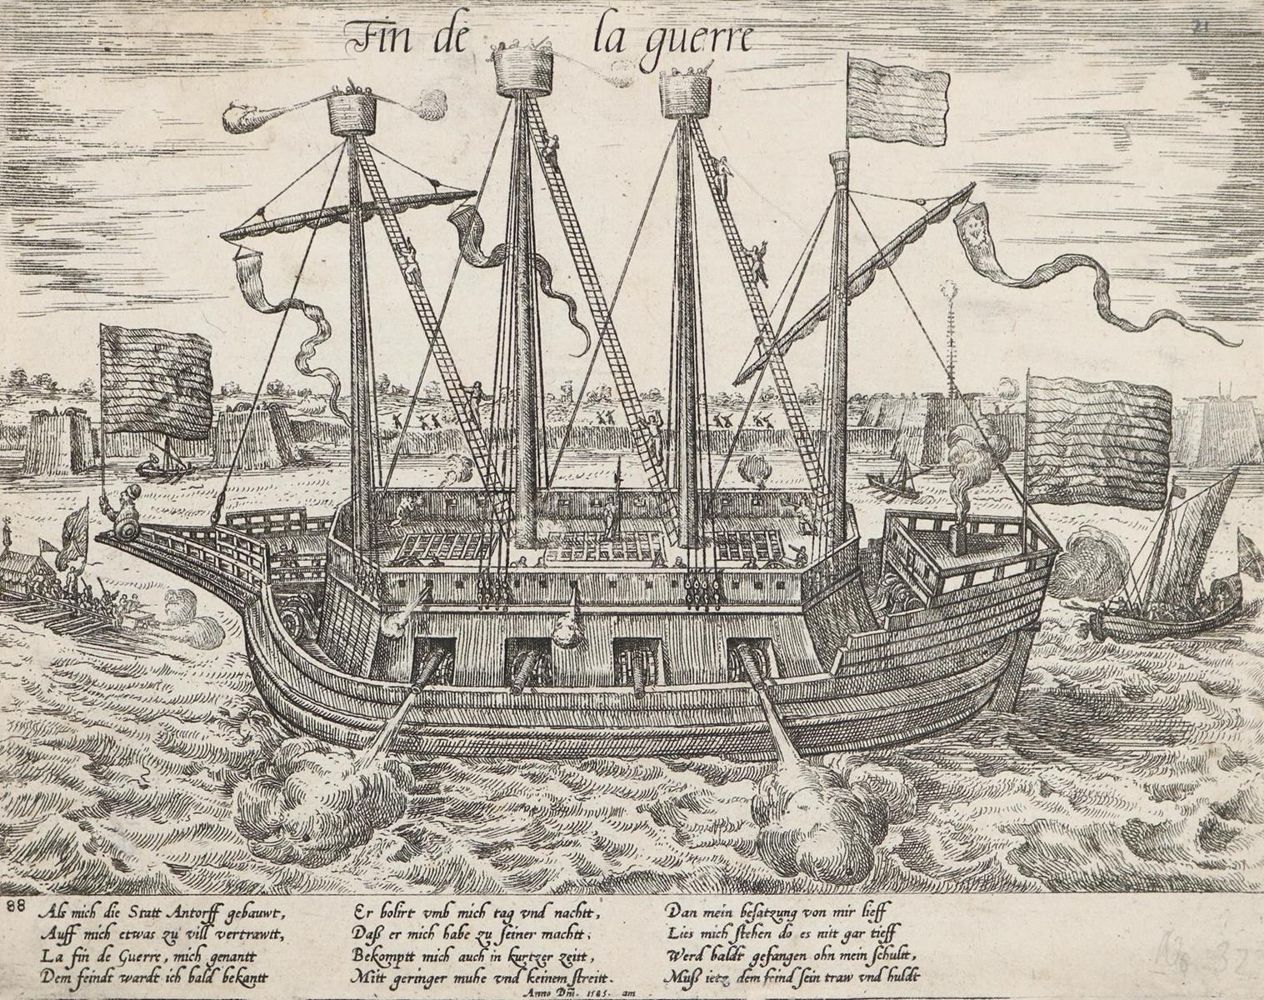 Fin de la guerre
21
88
Als mich die Statt Antorff gebauwt,
Auff mich etwas zu vill vertrawtt,
La fin de Guerre, mich genantt
Dem feindt wardt ich bald bekantt
Er bolirt vmb mich tag vnd nachtt,
Daß er mich habe zu seiner machtt:
Bekomptt mich auch in kurtzer zeitt,
Mitt geringer muhe vnd keinem streitt.
Dan mein besatzung von mir lieff
Lies mich stehen do es nitt gar tieff
Werd baldt gefangen ohn mein schultt,
Muß ietz dem feind sein traw vnd huldt
Anno Dm̄. 1585. am